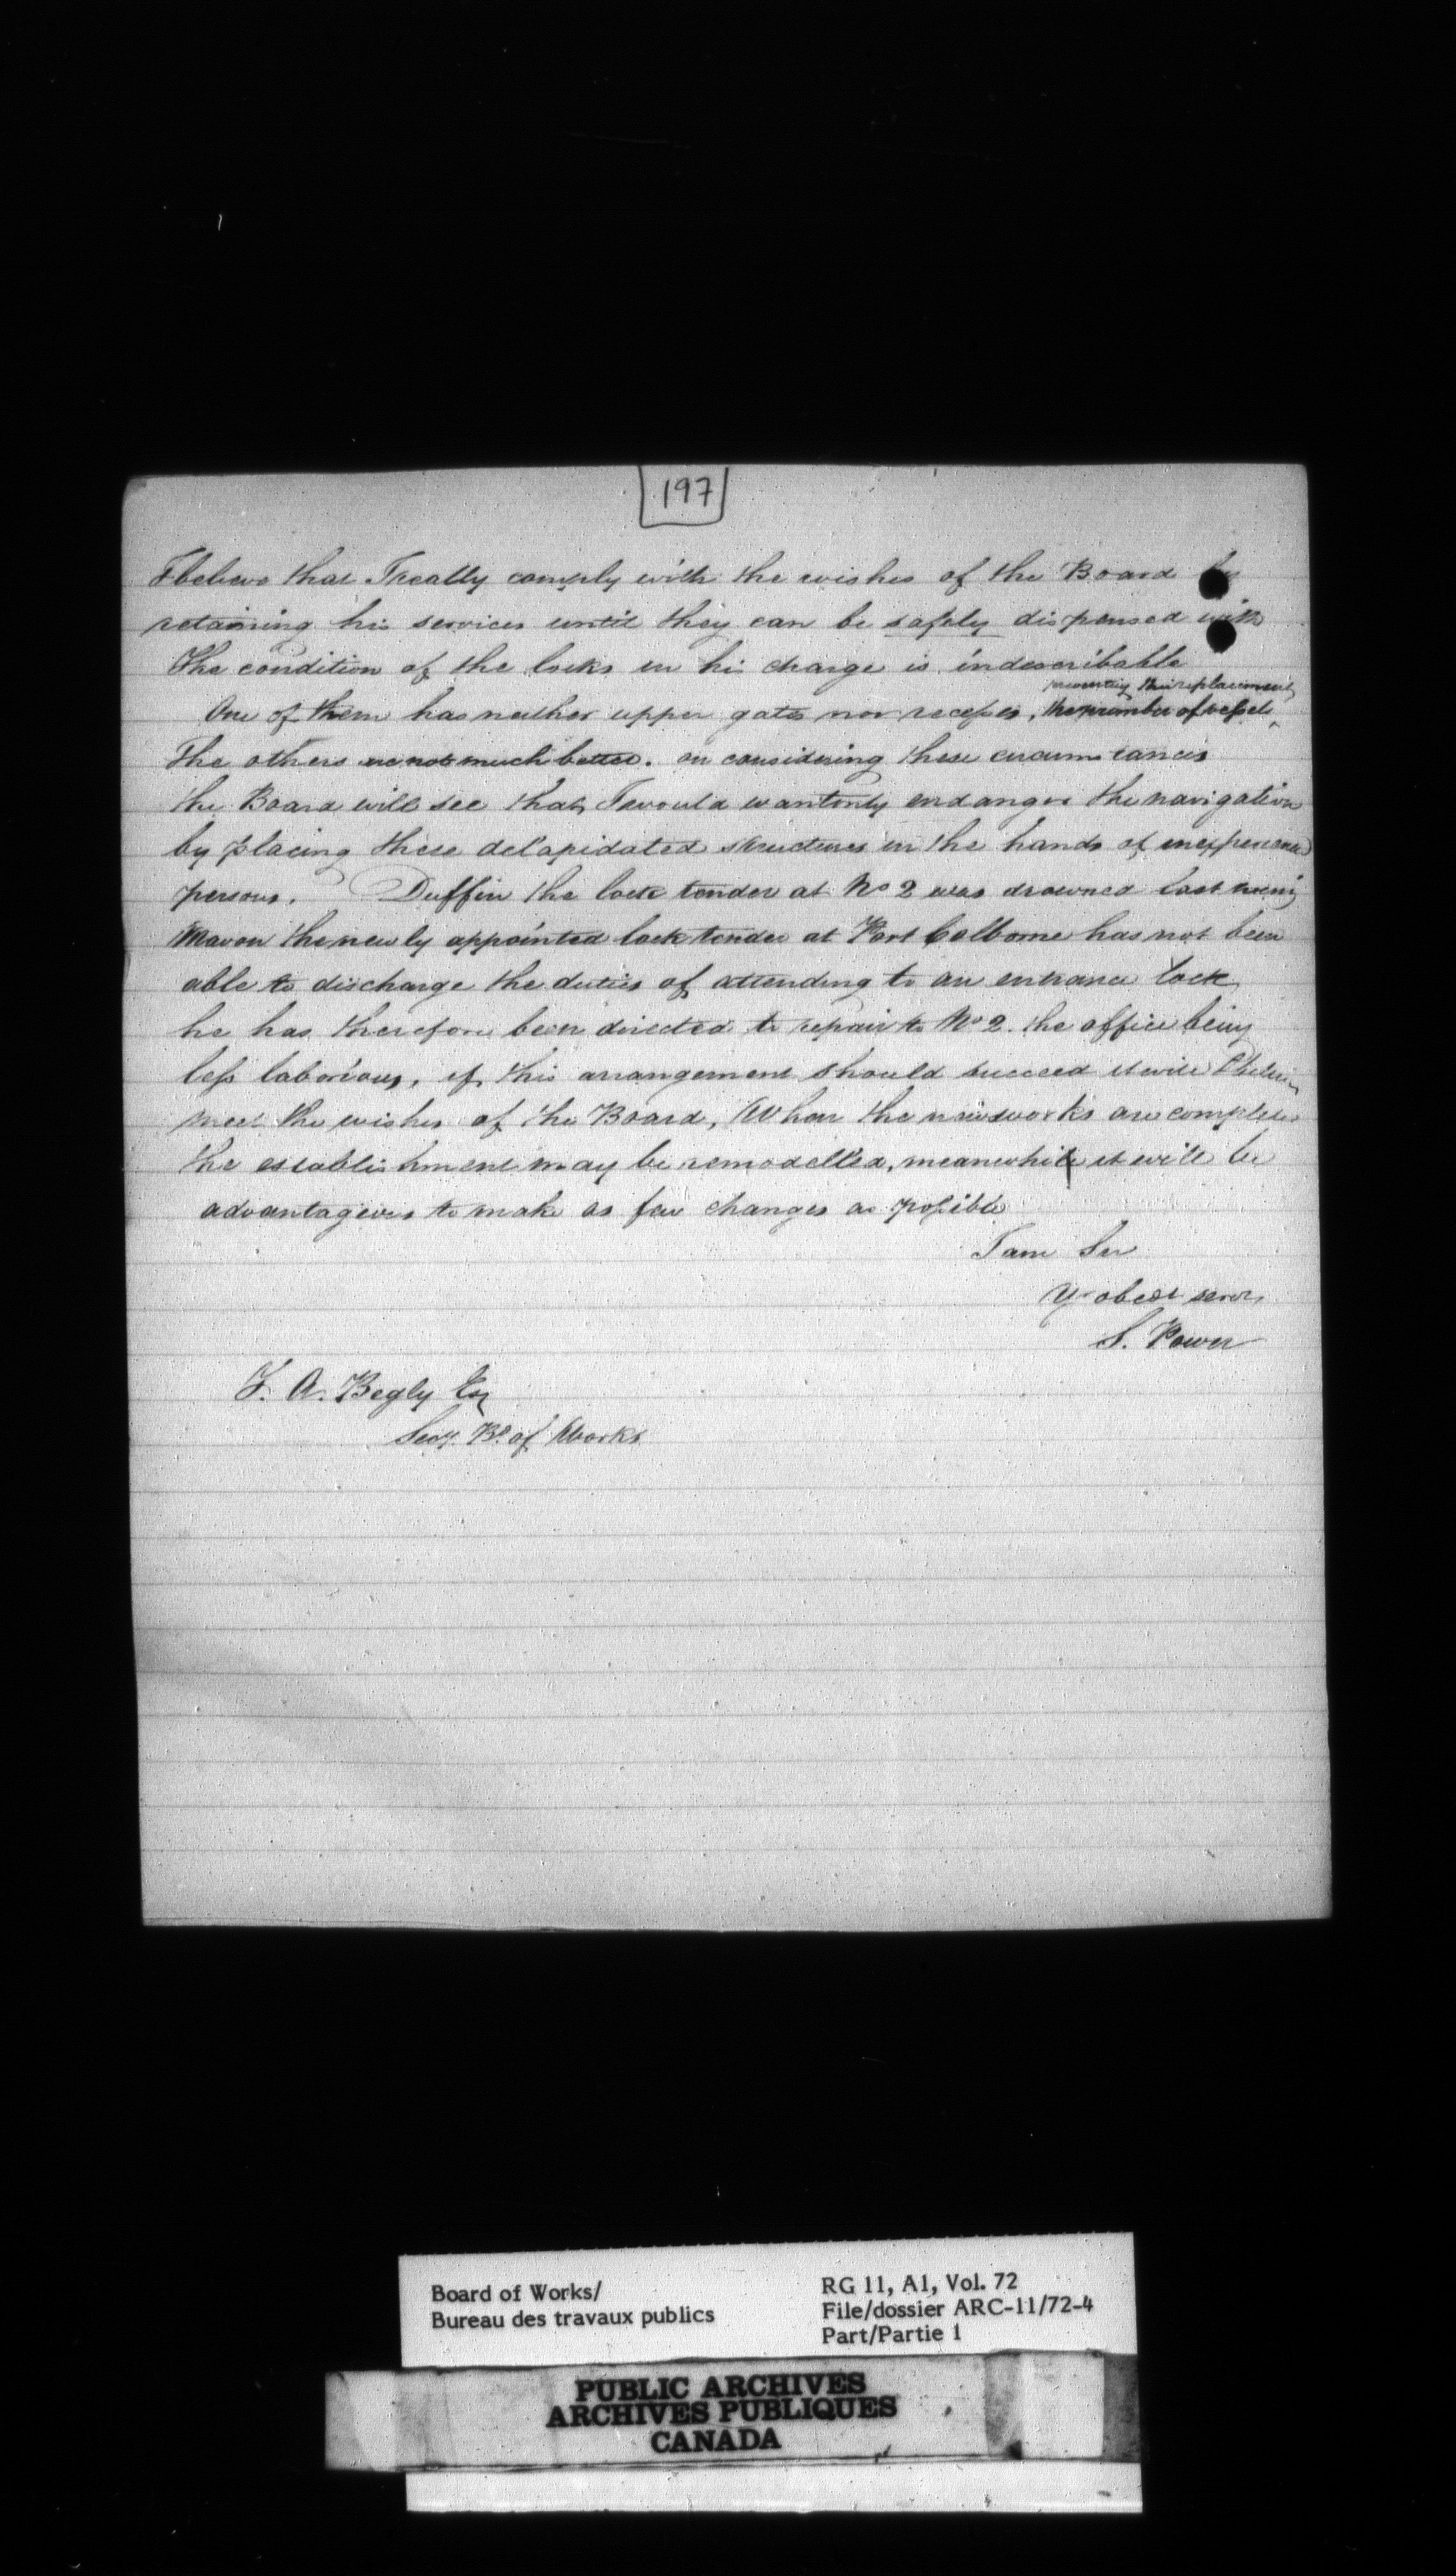 197
I believe that I really comply with the wishes of the Board by
retaining his services until they can be safely dispensed with
The condition of the locks in his charge is indescribable
preventing their replacement
One of them has neither upper gates nor recesses, the number of vessels
The others are not much better. on considering these circumstances
the Board will see that, I would wantonly endanger the navigation
by placing these delapidated structures in the hands of inexperienced
persons. Duffin the lock tender at No 2 was drowned last
Mavon the newly appointed lock tender at Port Colborne has not been
able to discharge the duties of attending to an entrance lock
he has therefore been directed to repair to No 2. the office being
less laborious, if this arrangement should succeed it will
meet the wishes of the Board, When the new works are completed
the establishment may be remodelled, meanwhile it will be
advantageous to make as few changes as possible
I am Sir
Yr obedt servt
S. Power
T. A. Begly Esq
Secy. Bd. of Works
Board of Works/
Bureau des travaux publics
RG 11, A1, Vol. 72
File/dossier ARC-11/72-4
Part/Partie 1
PUBLIC ARCHIVES
ARCHIVES PUBLIQUES
CANADA